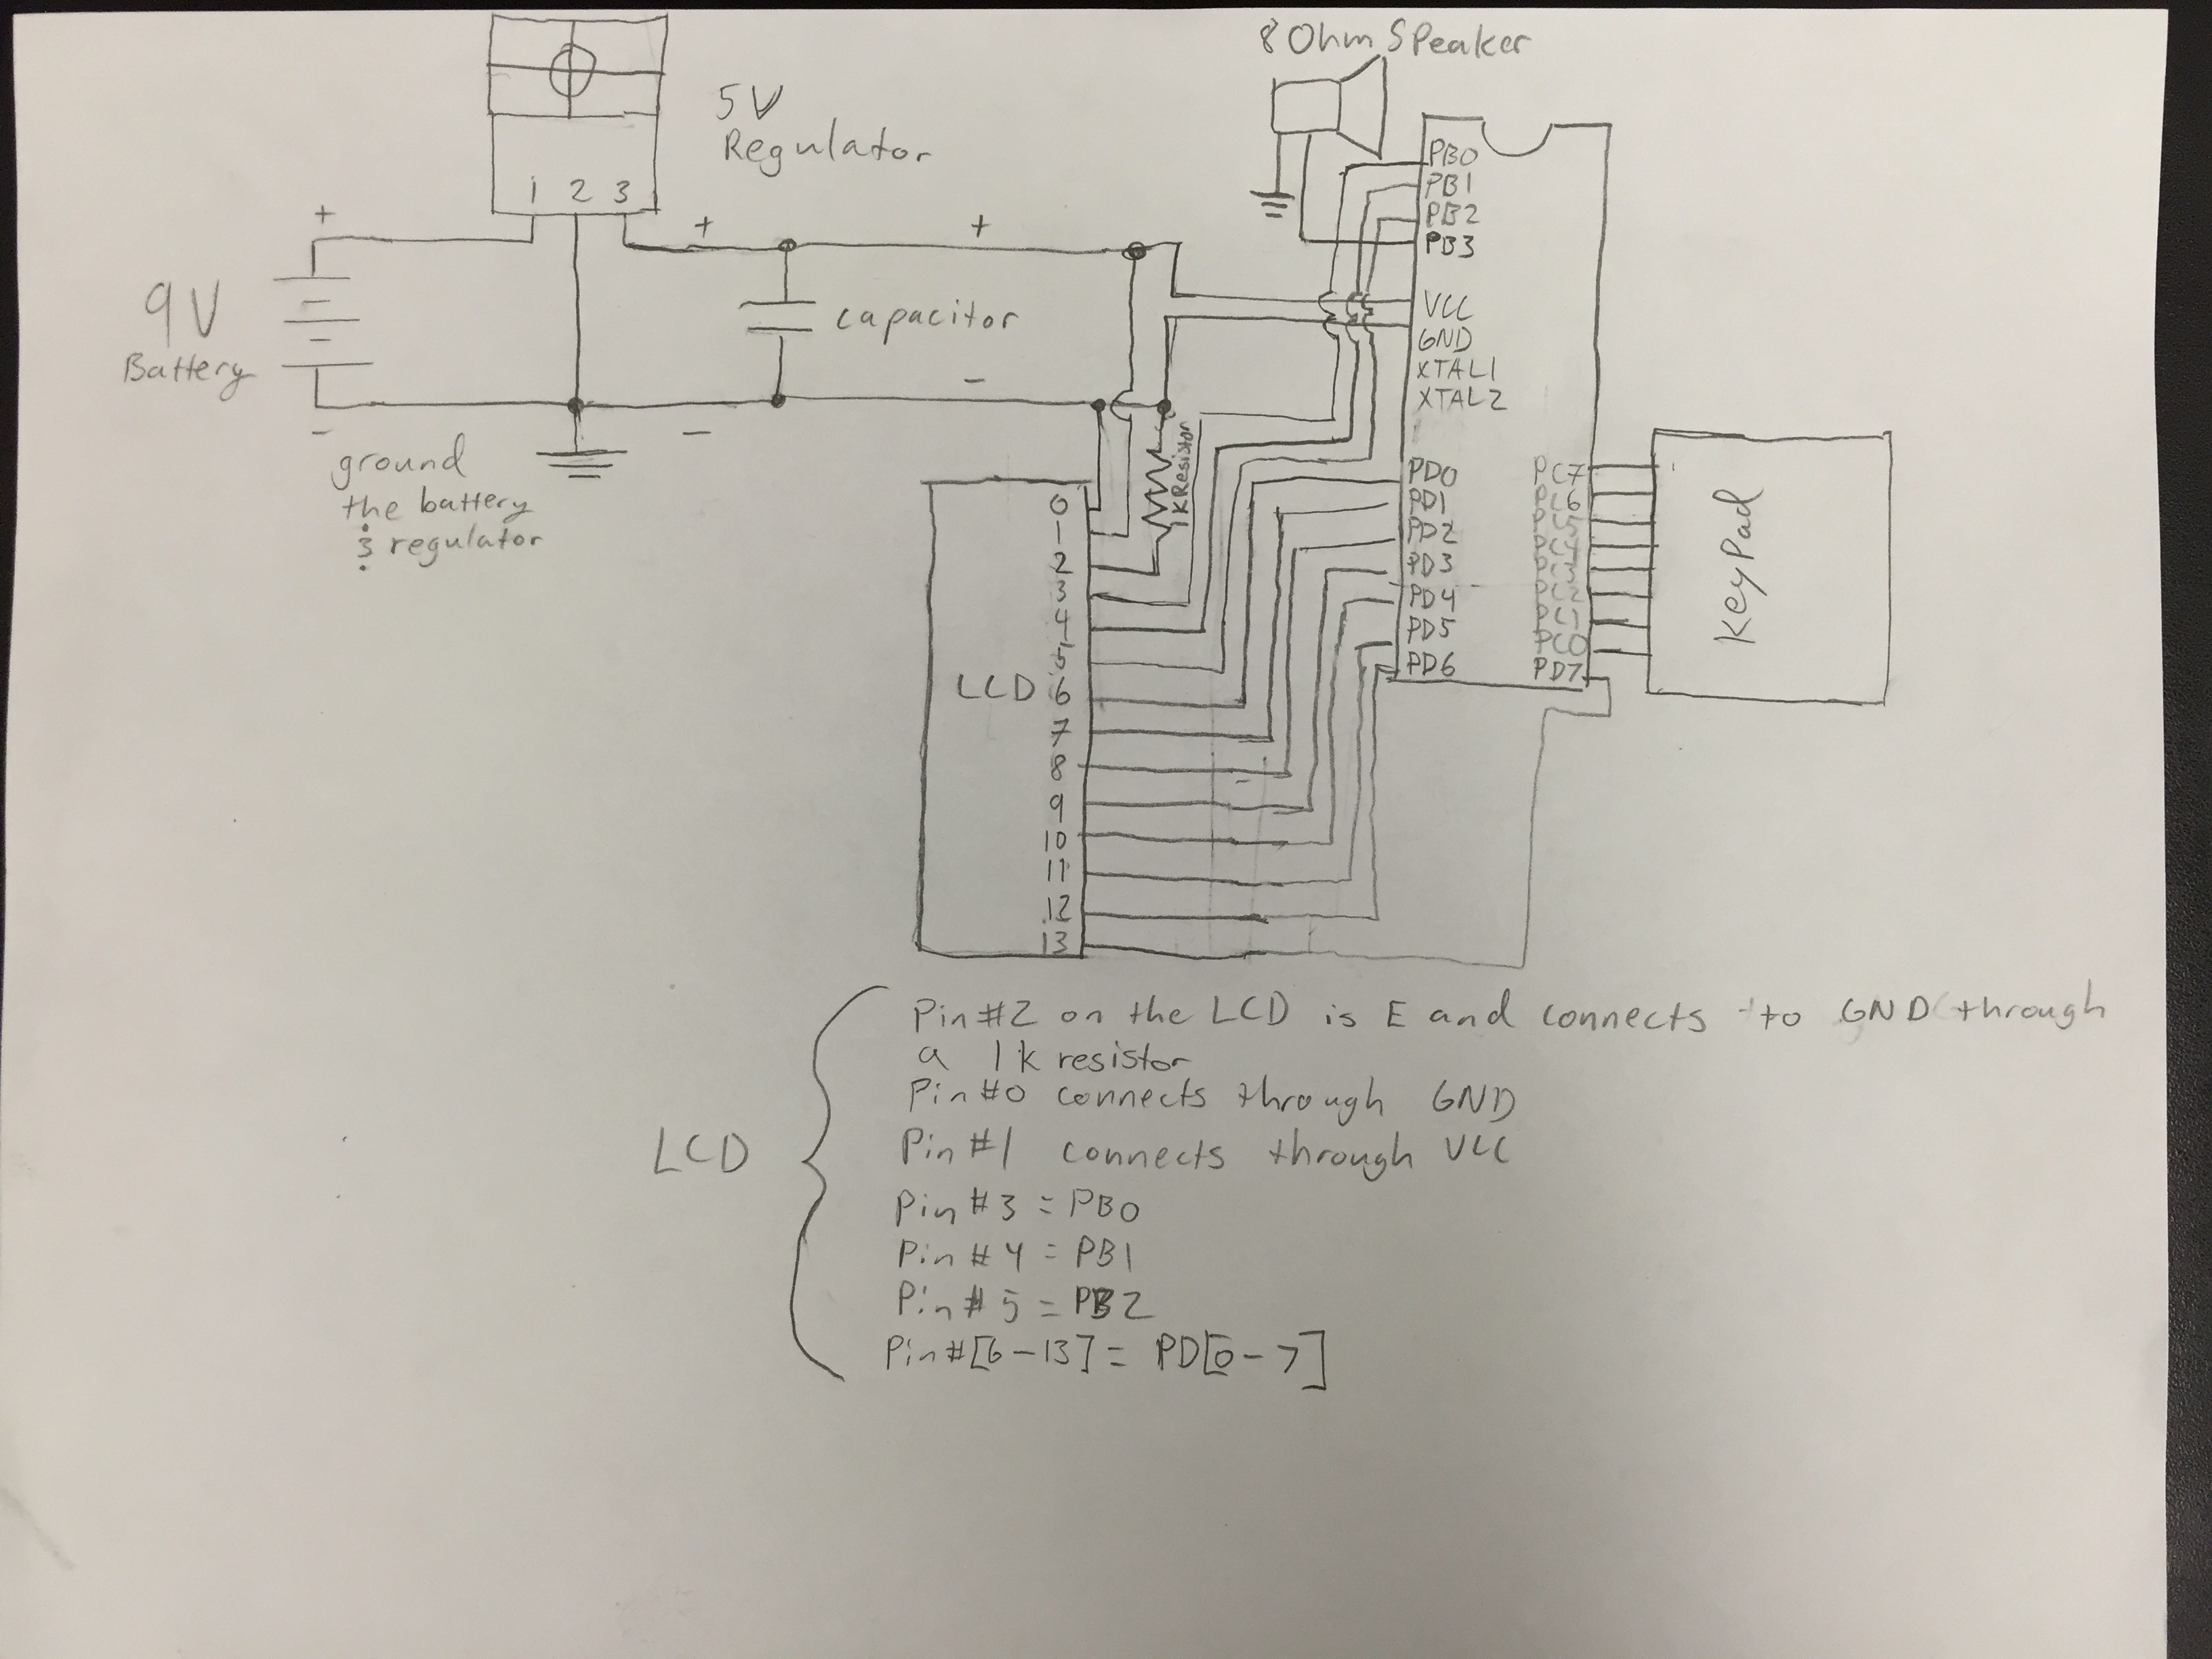 8 Ohm SPeaker
5V
Regulator
1 2 3
+
+
+
9V
Battery
capacitor
-
-
-
ground
the battery
& regulator
1K Resistor
PB0
PB1
PB2
PB3
VCC
GND
XTAL1
XTAL2
PD0
PD1
PD2
PD3
PD4
PD5
PD6
PC7
PC6
PC5
PC4
PC3
PC2
PC1
PC0
PD7
KeyPad
LCD
0
1
2
3
4
5
6
7
8
9
10
11
12
13
LCD
Pin #2 on the LCD is E and connects to GND through
a 1k resistor
Pin #0 connects through GND
Pin #1 connects through VCC
Pin #3 = PB0
Pin #4 = PB1
Pin #5 = PB2
Pin #[6-13] = PD[0-7]